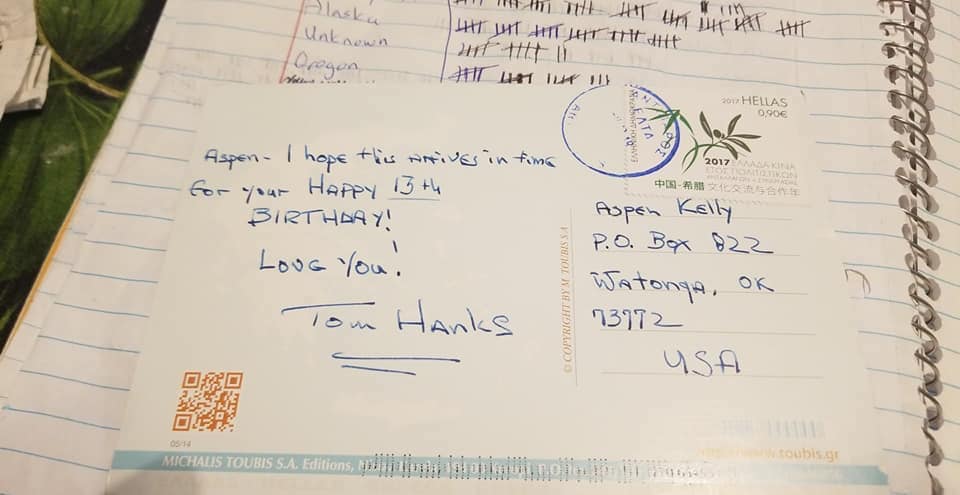 Alaska
Unknown
Oregon
2017 HELLAS
0,90€
ΕΛΛΗΝΙΚΗ ΔΗΜΟΚΡΑΤΙΑ
ΕΛΤΑ
2017 ΕΛΛΑΔΑ ΚΙΝΑ
ΕΤΟΣ ΠΟΛΙΤΙΣΤΙΚΩΝ
ΑΝΤΑΛΛΑΓΩΝ & ΣΥΝΕΡΓΑΣΙΑΣ
中国-希腊 文化交流与合作年
Aspen - I hope this arrives in time
for your HAPPY 13th
BIRTHDAY!
Love You!
Tom Hanks
© COPYRIGHT BY M. TOUBIS S.A.
Aspen Kelly
P.O. Box 822
Watonga, OK
73772
USA
05/14
MICHALIS TOUBIS S.A. Editions,
www.toubis.gr